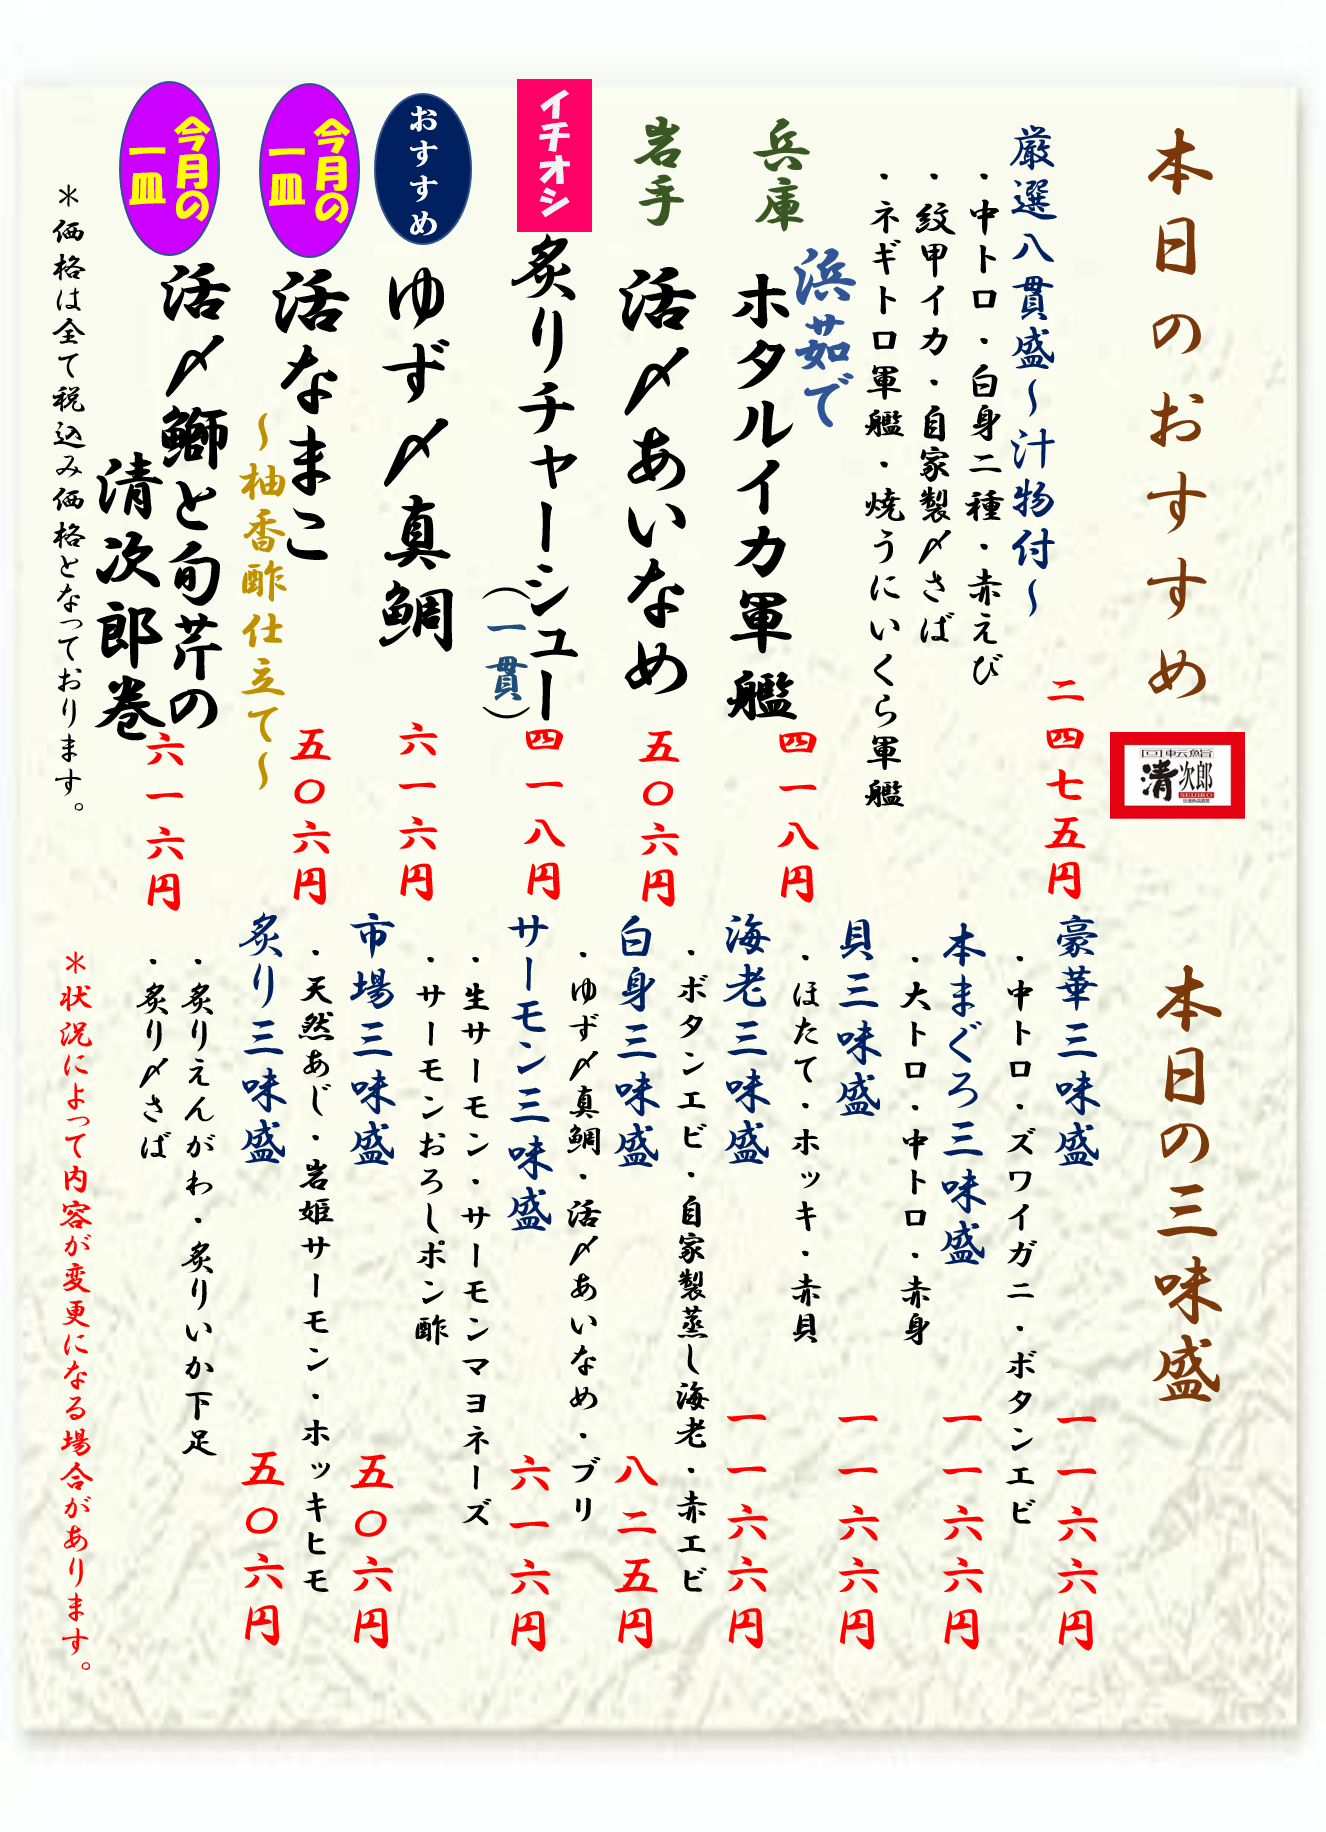 本日のおすすめ
回転鮨
清次郎
SEIJIRO
厳選八貫盛～汁物付～
二四七五円
・中トロ・白身二種・赤えび
・紋甲イカ・自家製〆さば
・ネギトロ軍艦・焼うにいくら軍艦
兵庫
浜茹で
ホタルイカ軍艦
四一八円
岩手
活〆あいなめ
五〇六円
イチオシ
炙りチャーシュー
（一貫）
四一八円
おすすめ
ゆず〆真鯛
六一六円
今月の
一皿
活なまこ
～柚香酢仕立て～
五〇六円
今月の
一皿
活〆鰤と旬芹の
清次郎巻
六一六円
＊価格は全て税込み価格となっております。
本日の三味盛
豪華三味盛
一一六六円
・中トロ・ズワイガニ・ボタンエビ
本まぐろ三味盛
一一六六円
・大トロ・中トロ・赤身
貝三味盛
一一六六円
・ほたて・ホッキ・赤貝
海老三味盛
一一六六円
・ボタンエビ・自家製蒸し海老・赤エビ
白身三味盛
八二五円
・ゆず〆真鯛・活〆あいなめ・ブリ
サーモン三味盛
六一六円
・生サーモン・サーモンマヨネーズ
・サーモンおろしポン酢
市場三味盛
五〇六円
・天然あじ・岩姫サーモン・ホッキヒモ
炙り三味盛
五〇六円
・炙りえんがわ・炙りいか下足
・炙り〆さば
＊状況によって内容が変更になる場合があります。